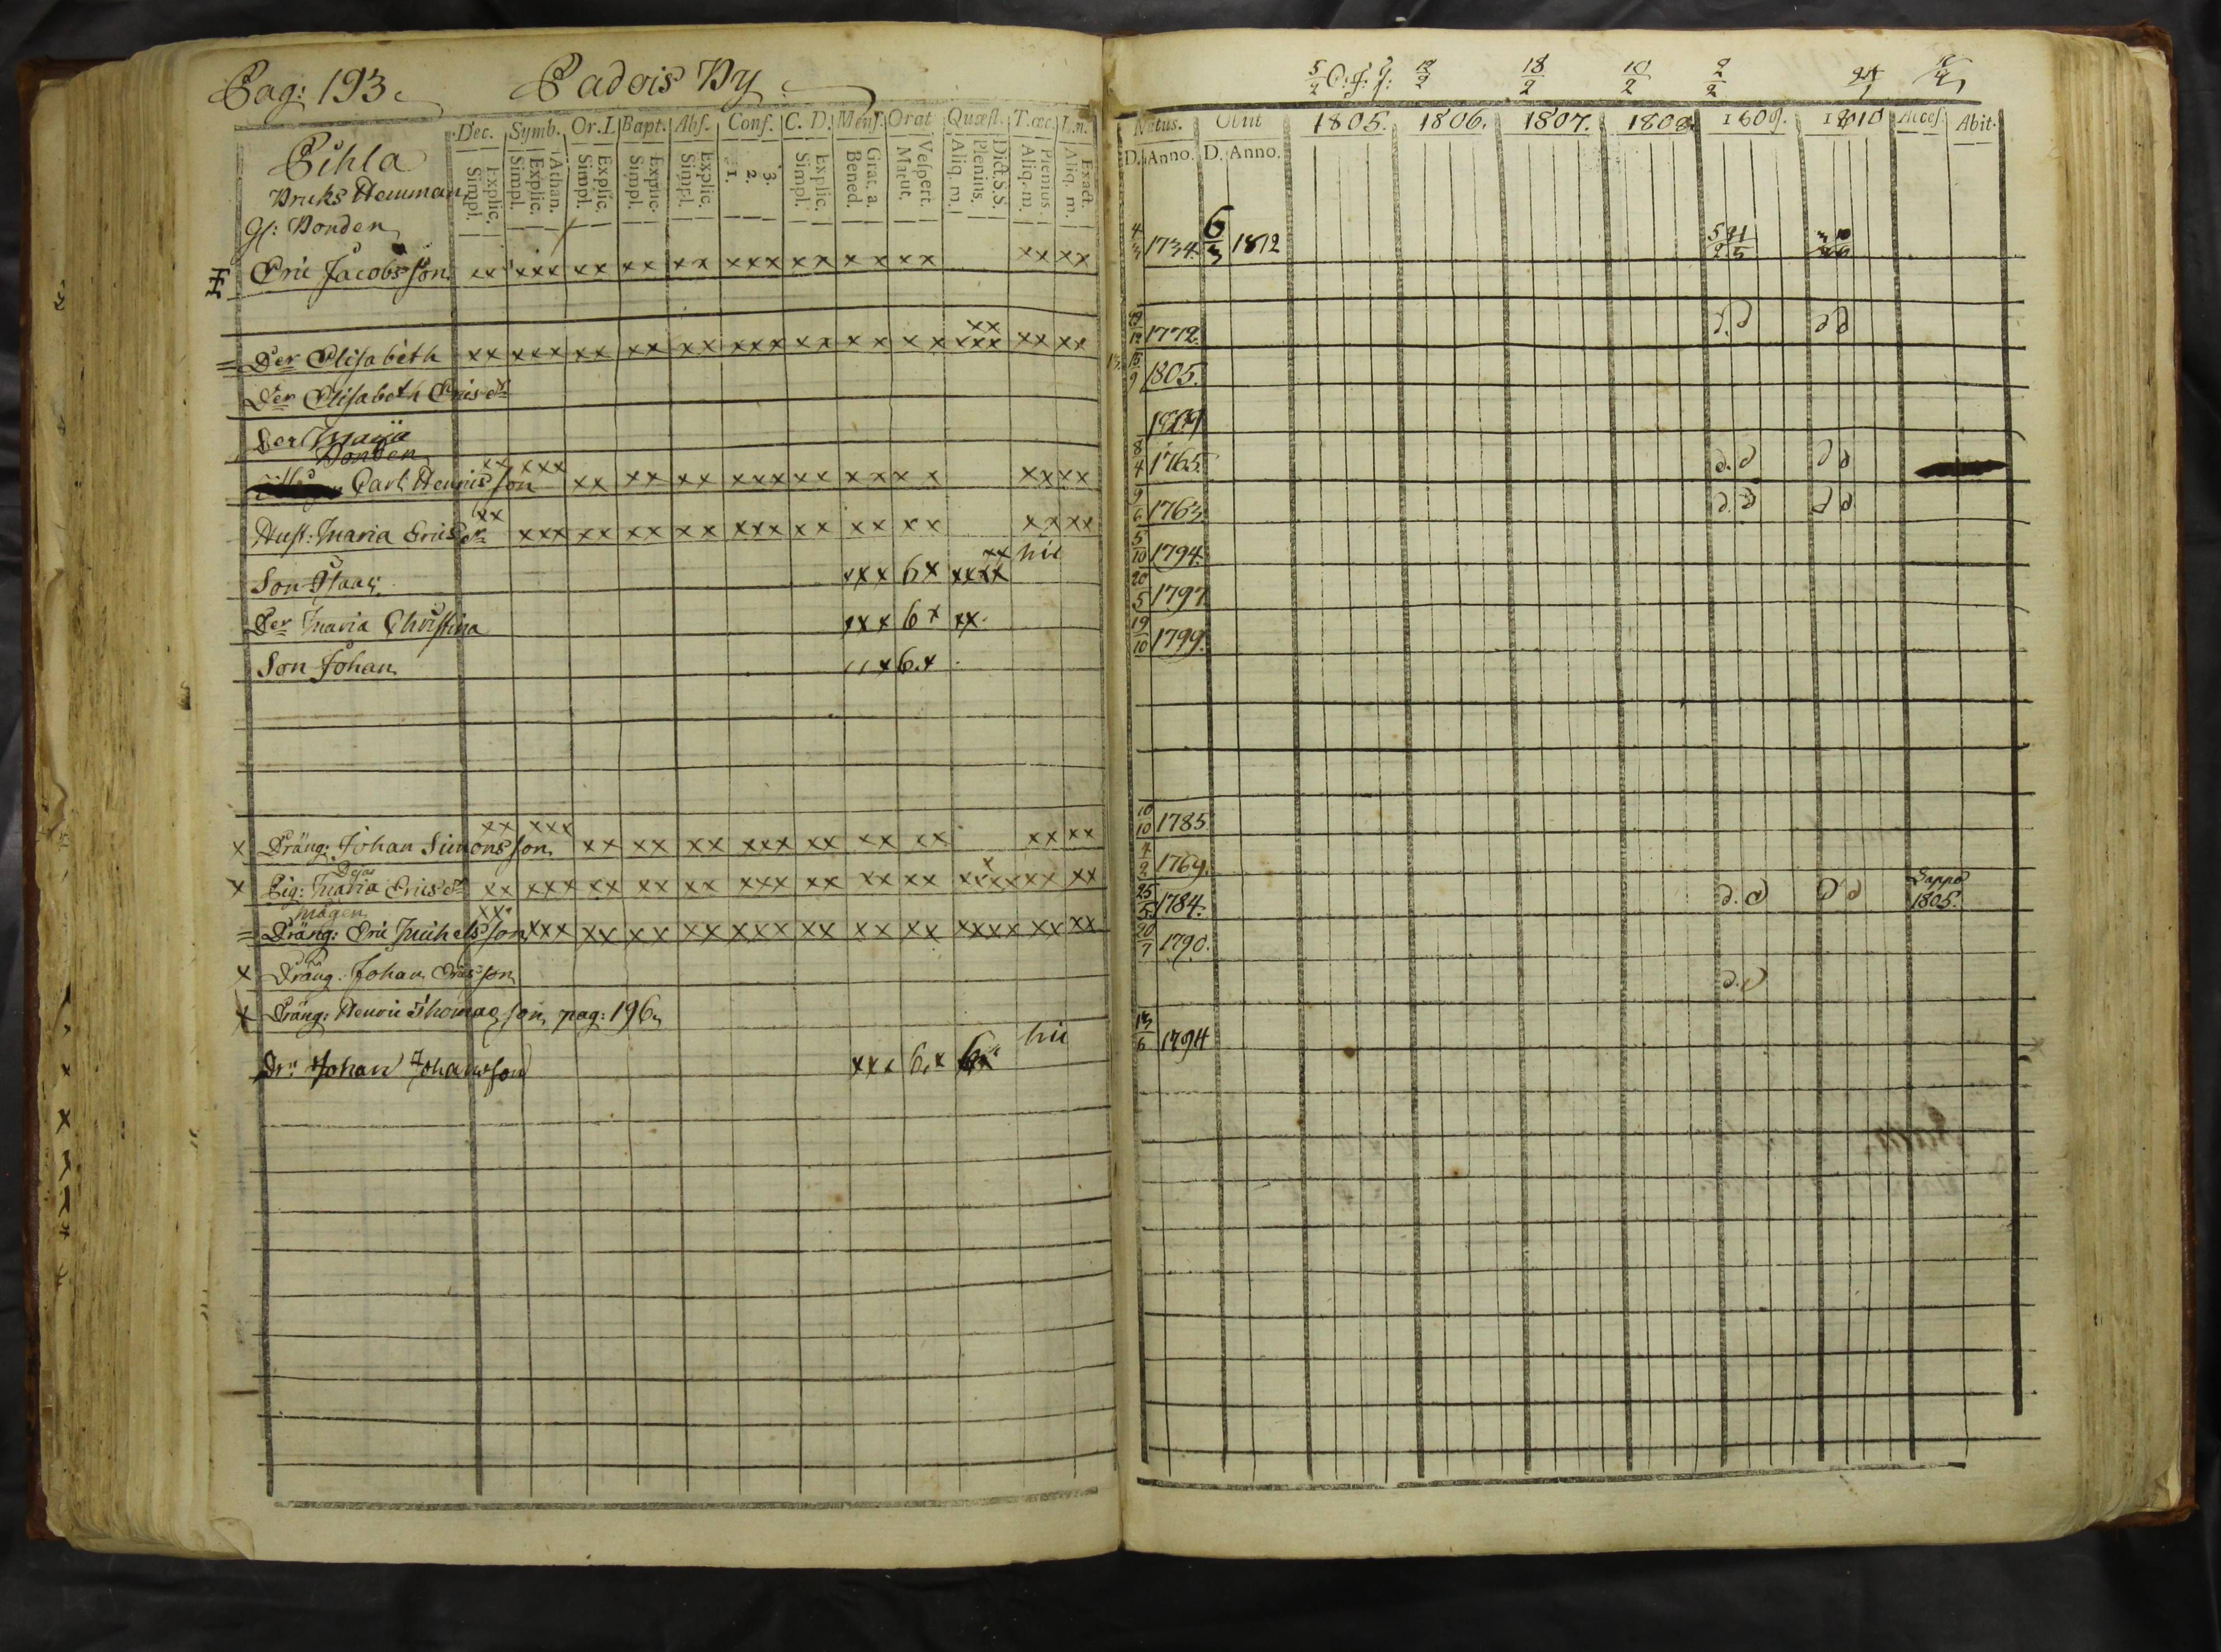 Pag: 193. Padois By
Dec. Symb. Or.D. Bapt. Abs. Conf. C. D. Mens. Orat Quæst. T.œc. I.n.
Explic. Simpl. Athan. Explic. Simpl. Explic. Simpl. Explic. Simpl. Explic. Simpl. 3. 2. 1. Explic. Simpl. Grat. a. Bened. Vespert. Matut. Dict.S.S. Plenius. Aliq. m. Plenius. Aliq. m. Exact. Aliq. m.
Pihla
Bruks Hemman
Gl: Bonden
Eric Jacobsson xx xxx xx xx xx xxx xx xx xx xx xx
Der Elisabeth xx xxx xx xx xx xxx xx xx xx xx xxx xx xx
Der Elisabeth Ericsdr
Der Maria
Bonden
Carl Henricsson xx xxx xx xx xx xxx xx xx xx xx xx
Hust: Maria Ericsdr xx xxx xx xx xx xxx xx xx xx xx xx
Son Isaac xxx 6x xx xxxx hic
Der Maria Christina xxx 6x xx
Son Johan x 6.x
Dräng: Johan Simonsson xx xxx xx xx xx xxx xx xx xx xx xx
Pig: Maria Ericsdr xx xxx xx xx xx xxx xx xx xx xx xx
mågen
Dräng: Eric Michelsson xx xxx xx xx xx xxx xx xx xx xxxx xx xx
Dräng: Johan Ericsson
Dräng: Henric Thomasson, pag: 196.
Dr: Johan Johansson xxx 6.x hic
5/2 12/2 18/2 10/2 2/2
Natus. Obiit 1805. 1806. 1807. 1808. 1809. 1810 Acces. Abit.
D. Anno. D. Anno.
4/3 1734. 6/3 1812
1772. d.d dd
15/9 1805.
1809
8/4 1765. d.d dd
9/6 1763. d.d dd
5/10 1794.
20/5 1797
19/10 1799.
10/10 1785
4/2 1769.
25/5 1784. d.d dd Sappo 1805.
20/7 1790.
d.d
13/6 1794